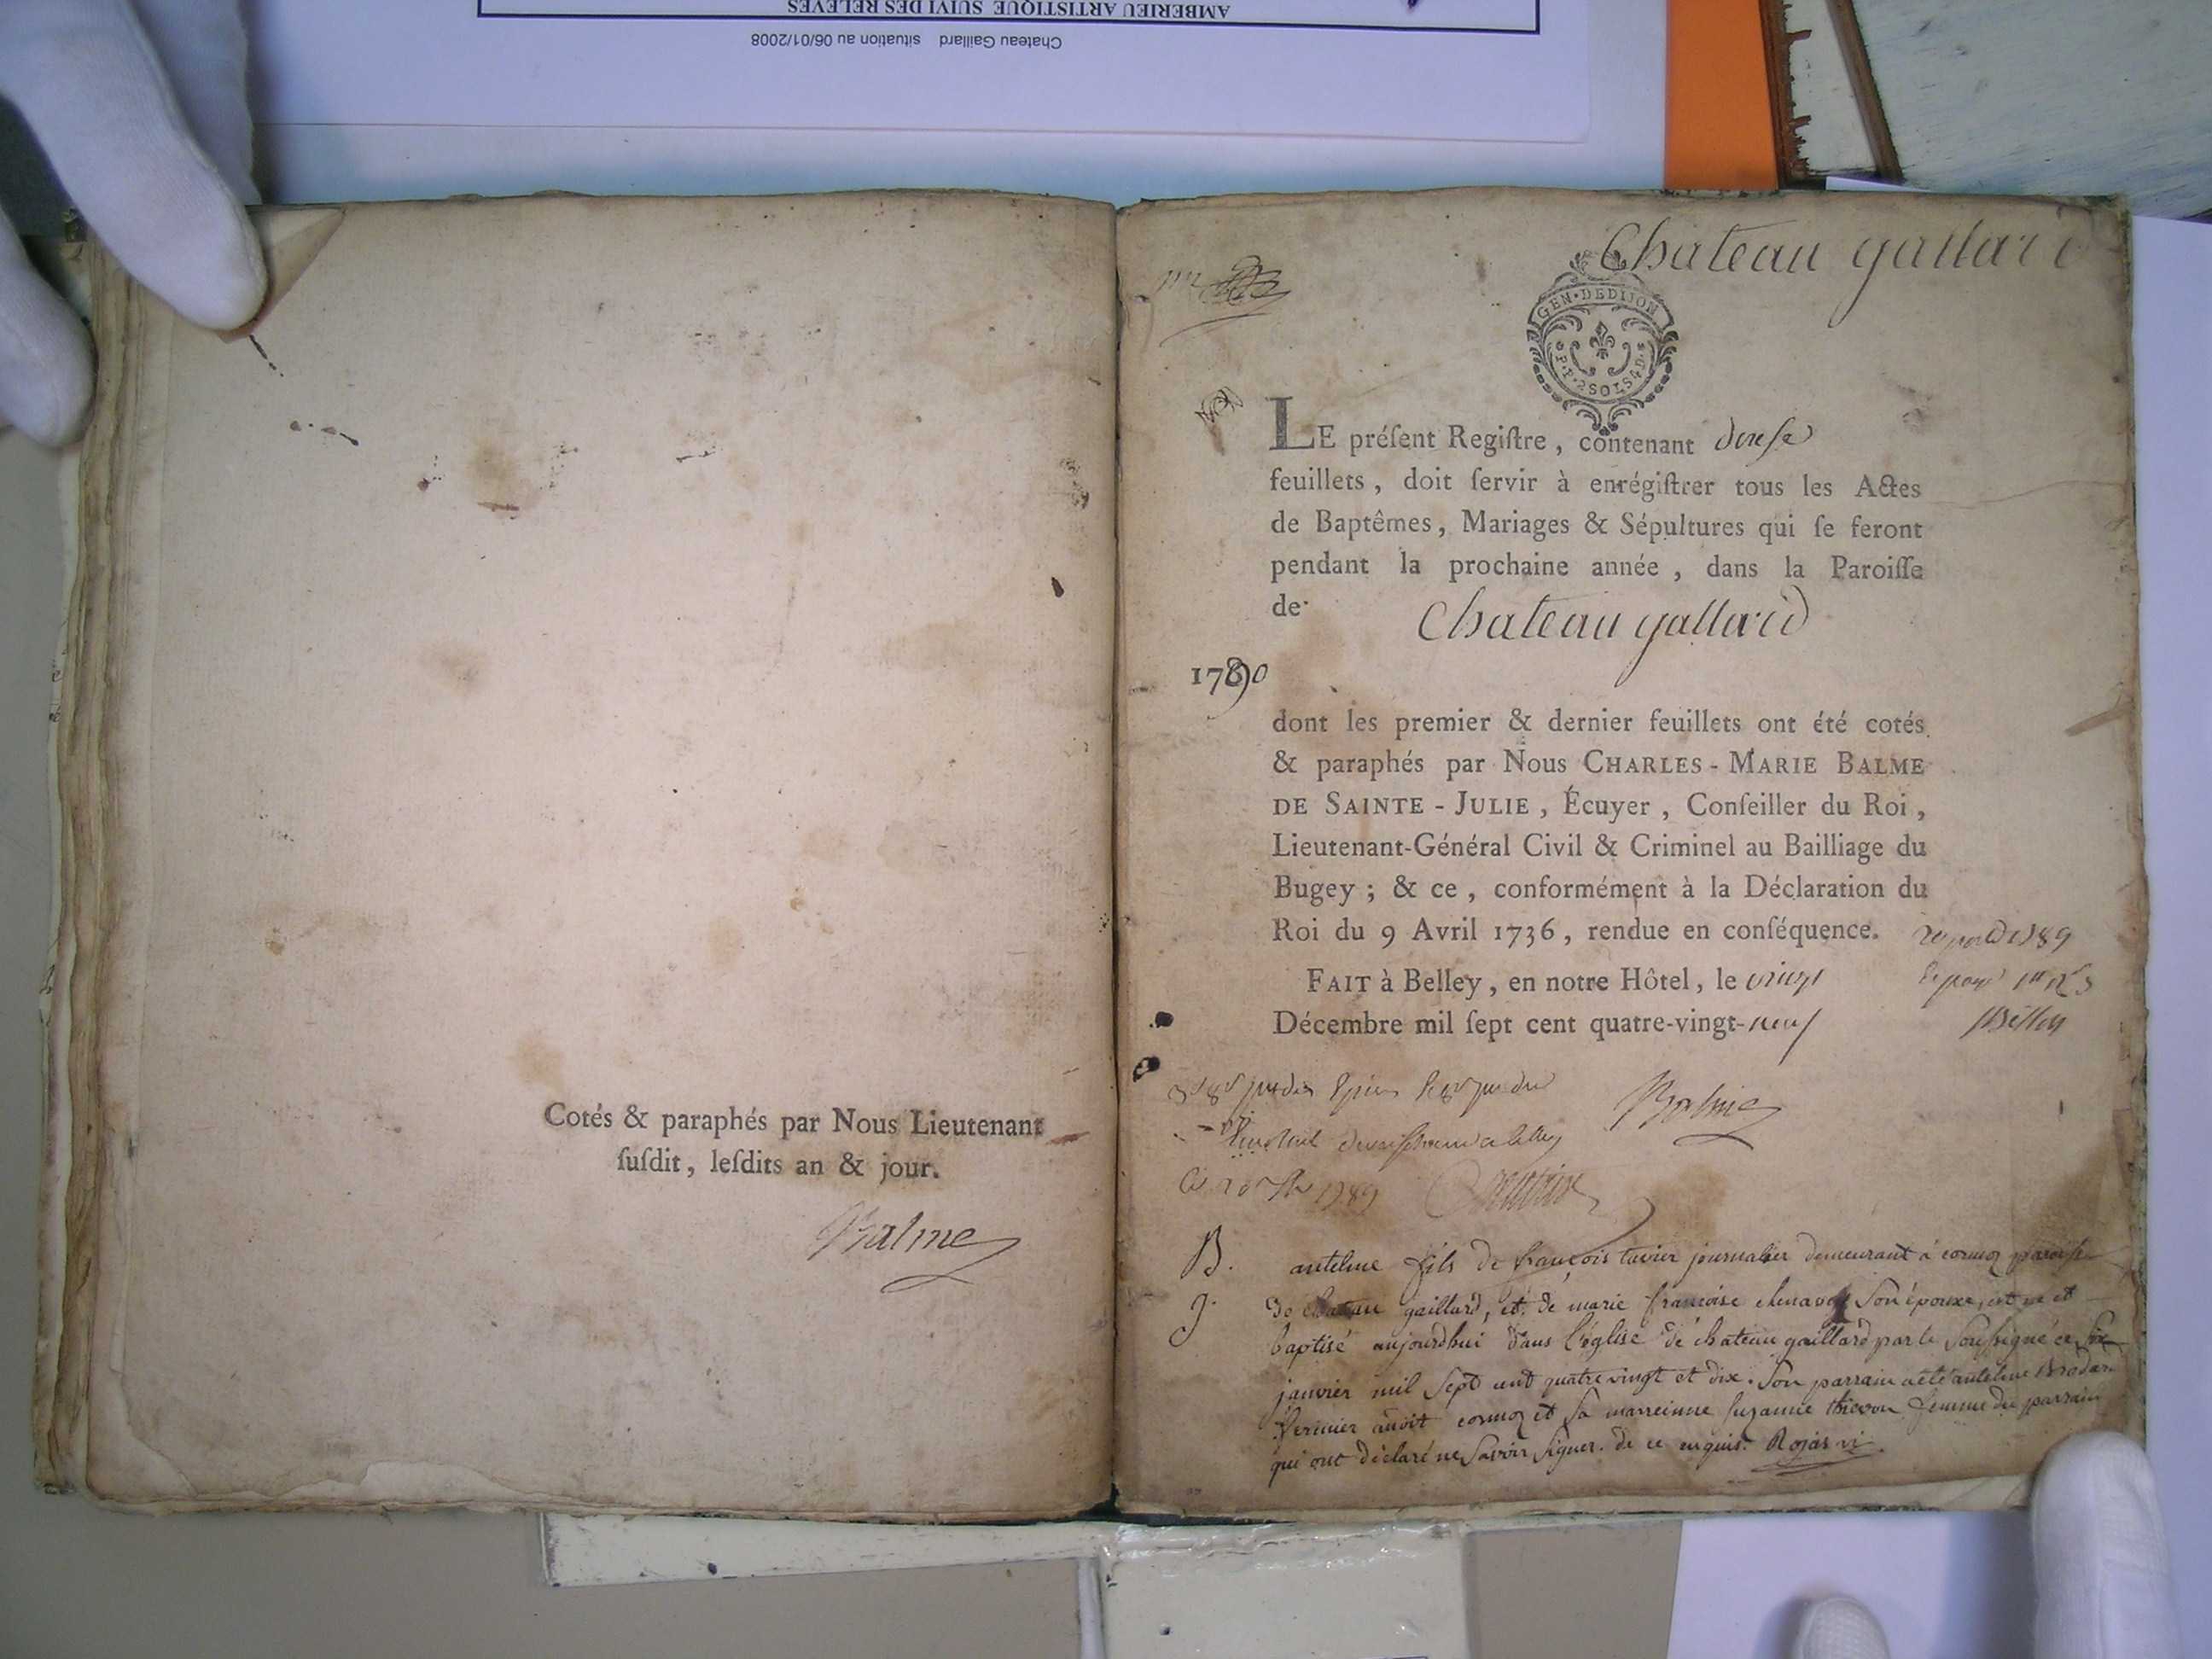 AMBERIEU ARTISTIQUE SUIVI DES RELEVES
Chateau Gaillard situation au 06/01/2008
Cotés & paraphés par Nous Lieutenant
ſuſdit, leſdits an & jour.
Balme
Chateau gallard
GEN·DEDIJON
P.P.2SOLS4D.
LE préſent Regiſtre, contenant douſe
feuillets, doit ſervir à enrégiſtrer tous les Actes
de Baptêmes, Mariages & Sépultures qui ſe feront
pendant la prochaine année, dans la Paroiſſe
de
Chateau gallard
1790
dont les premier & dernier feuillets ont été cotés
& paraphés par Nous CHARLES-MARIE BALME
DE SAINTE-JULIE, Écuyer, Conſeiller du Roi,
Lieutenant-Général Civil & Criminel au Bailliage du
Bugey; & ce, conformément à la Déclaration du
Roi du 9 Avril 1736, rendue en conſéquence.
FAIT à Belley, en notre Hôtel, le vingt
Décembre mil ſept cent quatre-vingt-neuf
Balme
1789
B. antelme fils de françois tavier journalier demeurant à cormoz paroisse
J. de chateau gaillard, et de marie françoise chenavoy son épouse, est né et
baptisé aujourdhui dans l'église de chateau gaillard par le soussigné ce six
janvier mil sept cent quatre vingt et dix. son parrain a été antelme Brodar
fermier audit cormoz et sa marreinne suzanne thievon femme du parrain
qui ont déclaré ne savoir signer. de ce enquis. Rojas vi.